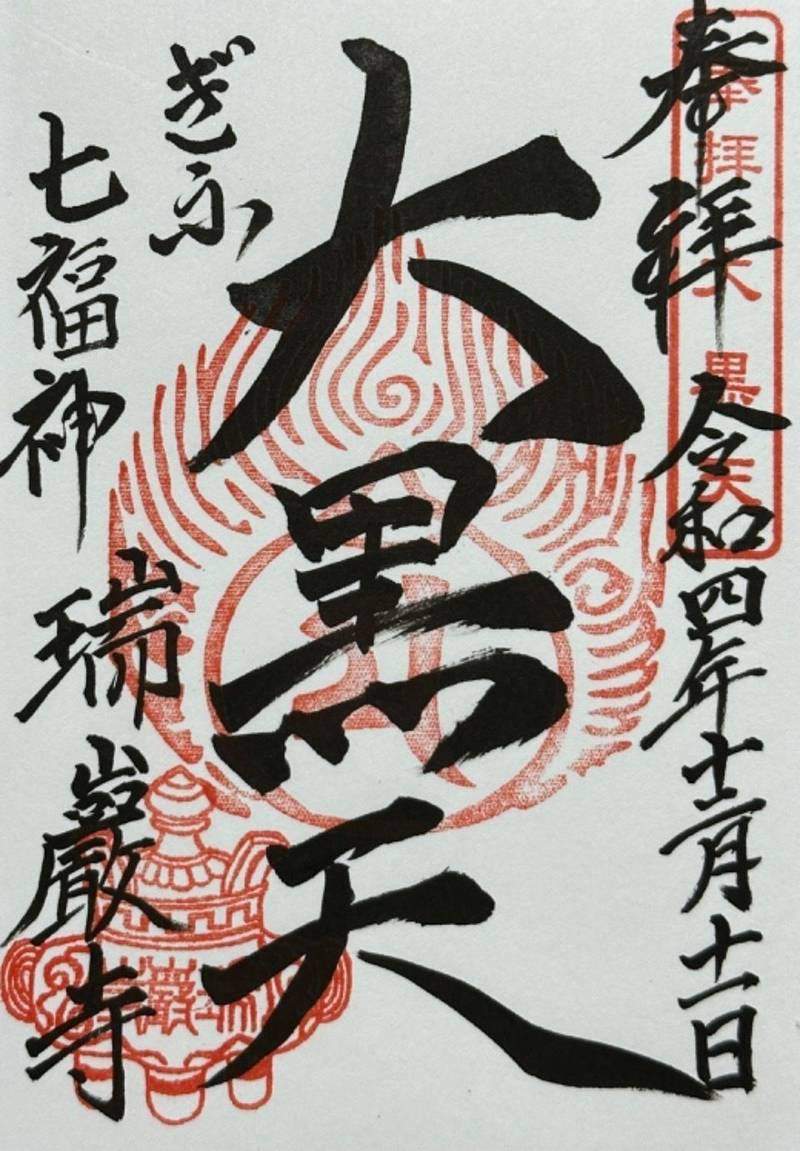 奉拝 令和四年十二月十一日
奉拝大黒天
大黒天
ぎふ
七福神 瑞巌寺
瑞巌寺